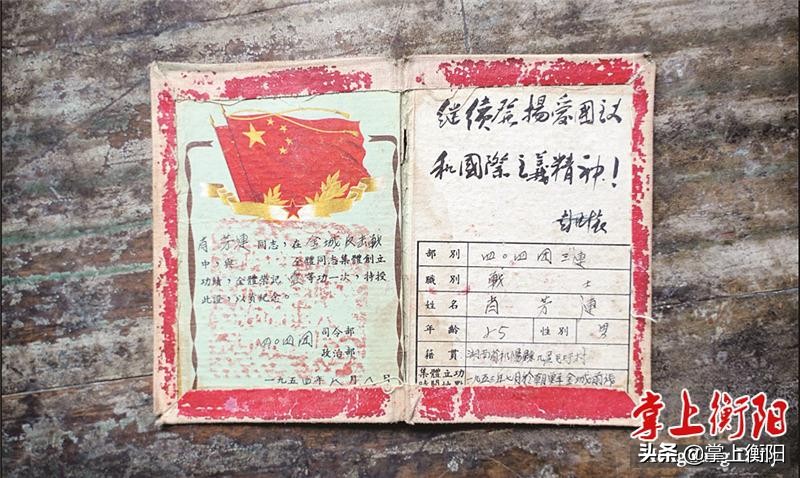 肖芳連同志，在金城反击戰
中，與 全體同志集體創立
功績，全體榮記 等功一次，特授
此證，以資紀念。
四〇四团 司令部
政治部
一九五四年八月八日
继续發揚爱国主义
和國際主義精神！
彭德怀
部別 四〇四团三連
職別 戰士
姓名 肖芳連
年齡 25 性別 男
籍貫 湖南省祁陽縣 村
集體立功 一九五三年七月於朝鮮金城前沿
時間地點
掌上衡阳
头条 @掌上衡阳